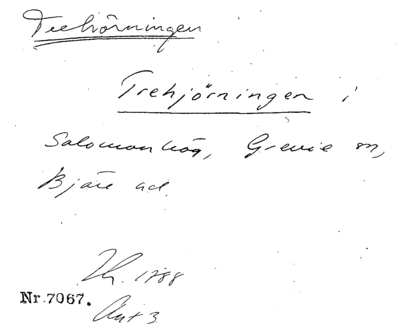 Trehörningen
Trehjörningen i
Salomonhög, Grevie sn,
Bjäre hd.
Lh. 1788
Nr 7067.
Akt 3